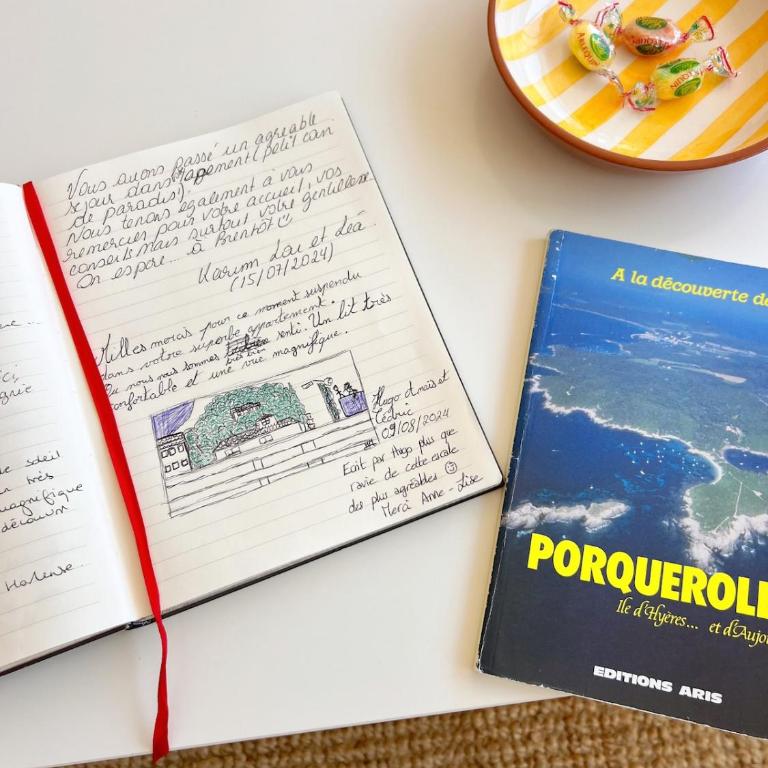 soleil
très
magnifique
Vous avons passé un agréable
séjour dans l'appement (petit coin
de paradis).
Nous tenons également à vous
remercier pour votre accueil, vos
conseils mais surtout votre gentillesse
On espère... à Bientôt
Karim Lou et Léa.
(15/07/2024)
Milles mercis pour ce moment suspendu
dans votre superbe appartement.
nous nous sommes très bien senti. Un lit très
confortable et une vue magnifique.
Hugo Anaïs et
Cédric
09/08/2024
Ecrit par Hugo plus que
ravie de cette escale
des plus agréables
Merci Anne-Lise
ARLEQUIN
A la découverte de
PORQUEROLL
Ile d'Hyères... et d'Aujou
EDITIONS ARIS